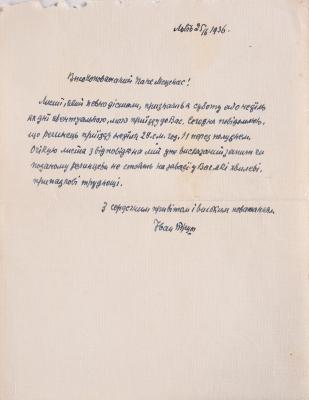 Львів 25/6 1936.
Високоповажаний Пане Меценас!
Лист, який певно дістали, призначав суботу або неділю
на дні евентуального, мого приїзду до Вас. Сьогодня повідомляю,
що реченець приїзду неділя 28. с. м. год. 11 перед полуднем.
Очікую листа з відповідю на мій запит чи
поданому реченцеви не стоять на заваді у Вас які хвилеві,
припадкові труднощі.
З сердечним привітом і високим поважанням.
Іван Труш